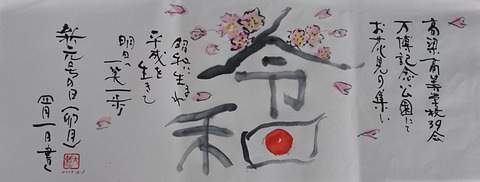 高梁高等学校39会
万博記念公園にて
お花見の集い
令和
昭和に生まれ
平成を生きて
明日へ一笑一歩
新元号の日(卯月)
四月一日書く